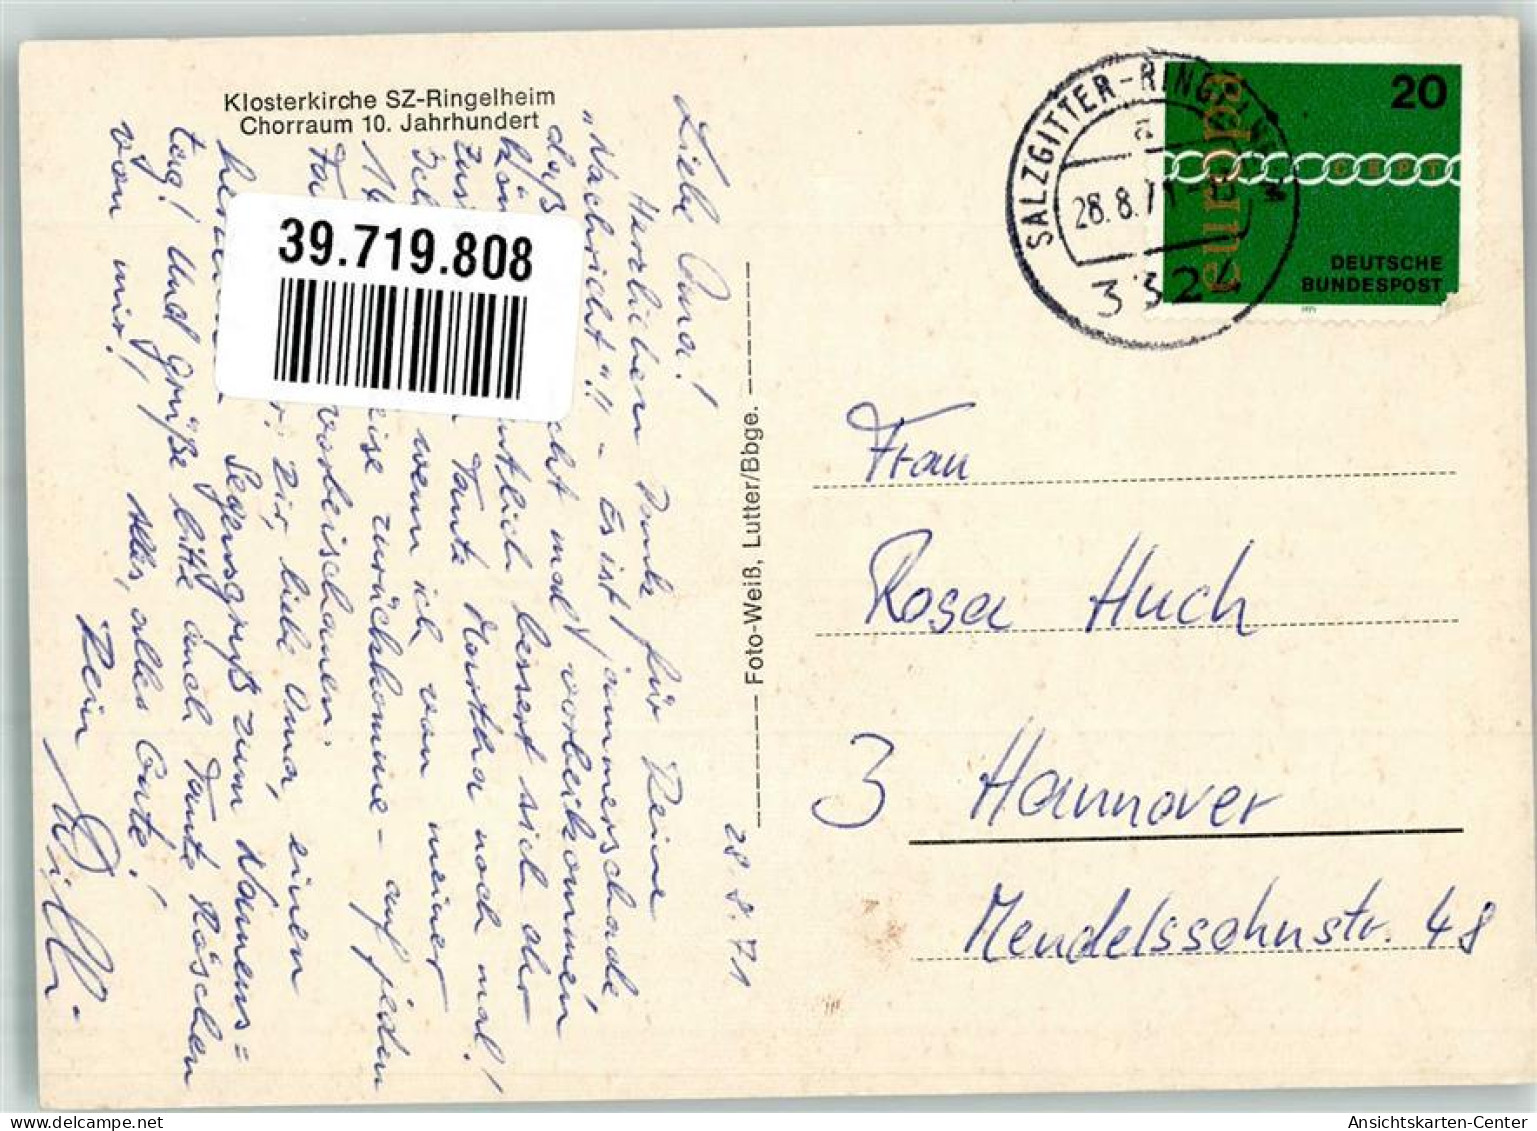 Klosterkirche SZ-Ringelheim
Chorraum 10. Jahrhundert
39.719.808
Foto-Weiß, Lutter/Bbge.
28.8.71
Liebe Oma!
Herzlichen Dank für Deine
„Nachricht"!! - Es ist jammerschade,
daß cht mal vorbeikommen
kön utlich bessert sich der
Zus Tante Martha noch mal!
Ich wenn ich von meiner
16 eise zurückkomme - auf jeden
Fa vorbeischauen.
r, Dir, liebe Oma, einen
Segensgruß zum Namens=
tag! Und grüße bitte auch Tante Röschen
von mir! Alles, alles Gute!
Dein Willi.
SALZGITTER-RINGELHEIM
a
28.8.71
3324
20
europa
CEPT
DEUTSCHE
BUNDESPOST
1971
Frau
Rosa Huch
3 Hannover
Mendelssohnstr. 48
Ansichtskarten-Center